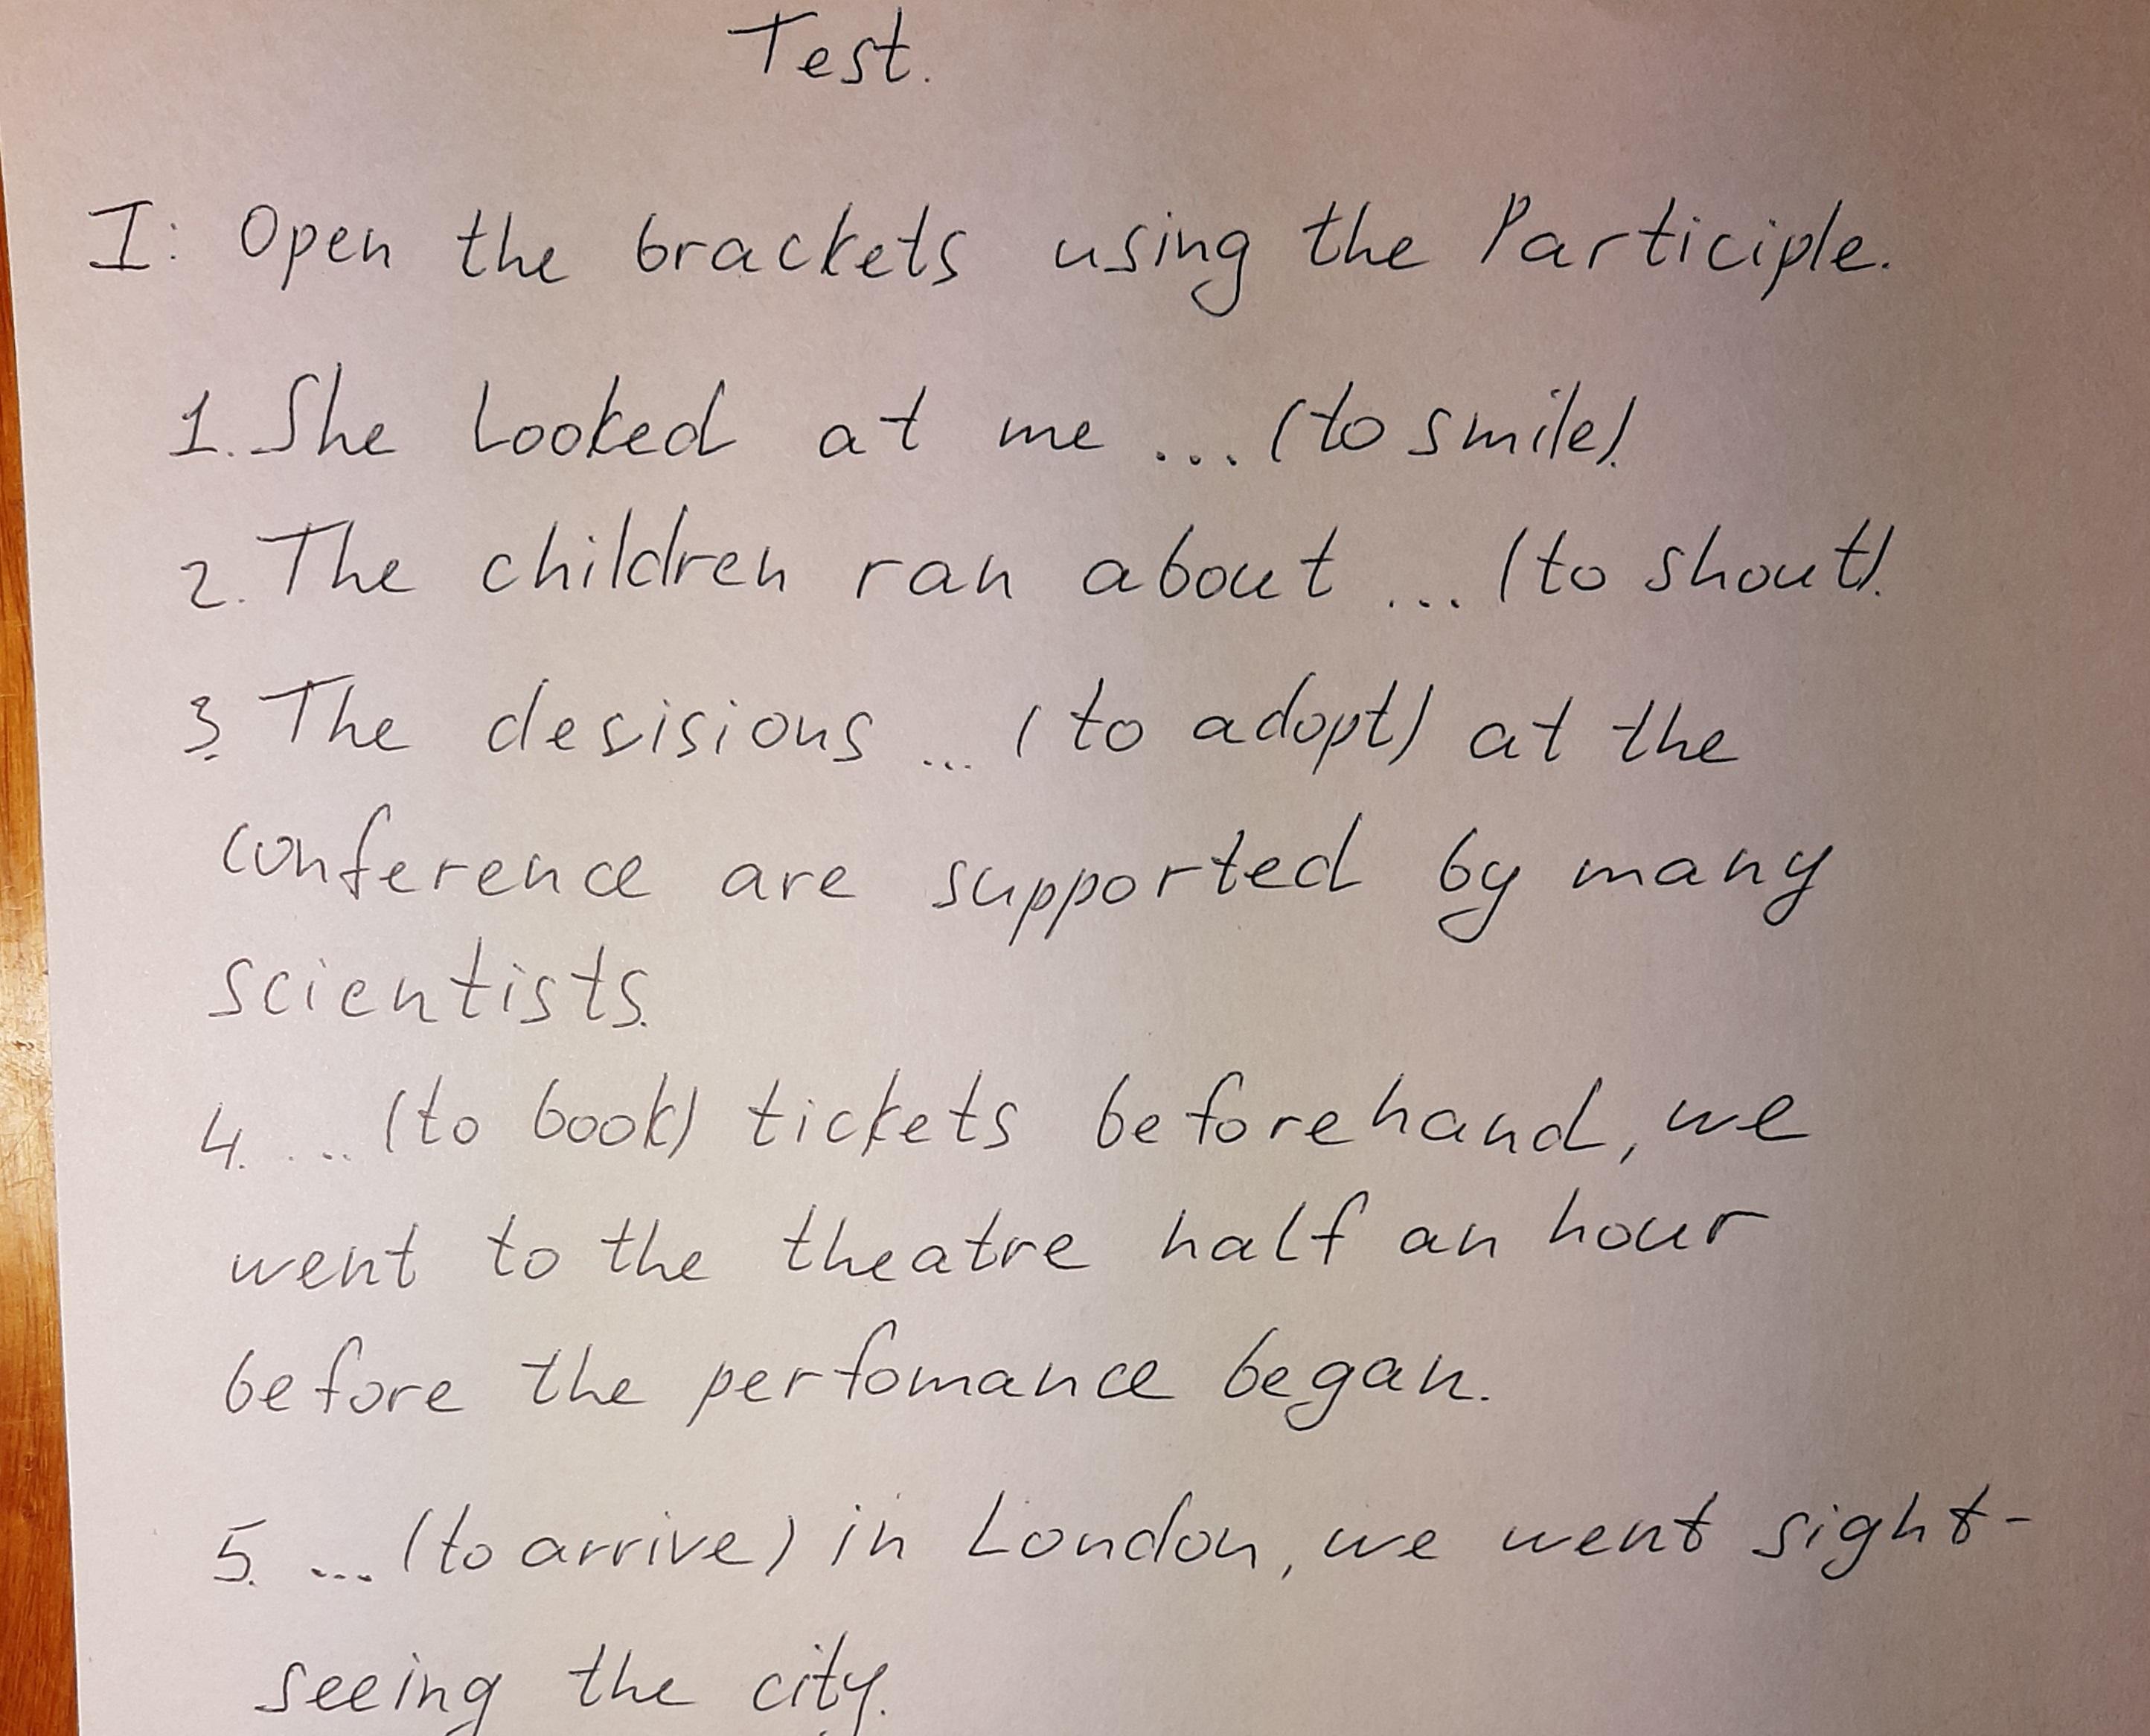 Test.
I: Open the brackets using the Participle.
1. She looked at me ... (to smile).
2. The children ran about ... (to shout).
3. The desisions ... (to adopt) at the
conference are supported by many
scientists.
4. ... (to book) tickets beforehand, we
went to the theatre half an hour
before the perfomance began.
5. ... (to arrive) in London, we went sight-
seeing the city.